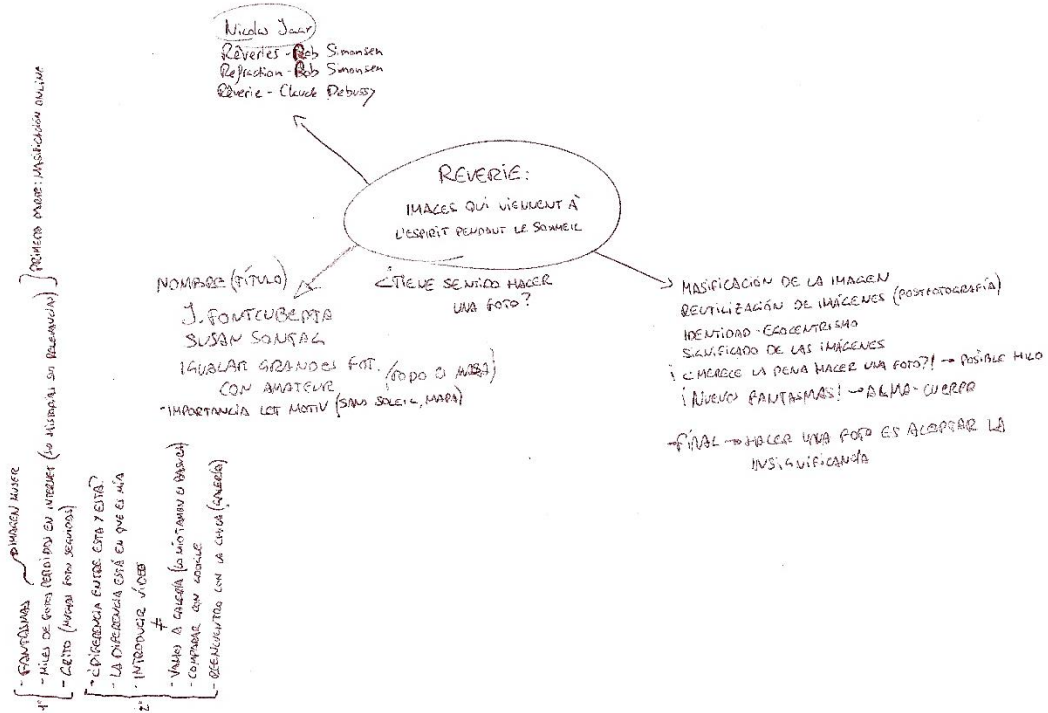 Nicolas Jaar
Rêveries - Rob Simonsen
Refraction - Rob Simonsen
Rêverie - Claude Debussy
REVERIE:
IMAGES QUI VIENNENT À
L'ESPIRIT PENDANT LE SOMMEIL
NOMBRE (TÍTULO)
J. FONTCUBERTA
SUSAN SONTAG
IGUALAR GRANDES FOT.
CON AMATEUR (TODO O NADA)
- IMPORTANCIA LET MOTIV (SANS SOLEIL, MAPA)
¿TIENE SENTIDO HACER
UNA FOTO?
MASIFICACIÓN DE LA IMAGEN
REUTILIZACIÓN DE IMÁGENES (POSTFOTOGRAFÍA)
IDENTIDAD - EGOCENTRISMO
SIGNIFICADO DE LAS IMÁGENES
¡¿MERECE LA PENA HACER UNA FOTO?! → POSIBLE HILO
¡NUEVOS FANTASMAS! → ALMA - CUERPO
→ FINAL → HACER UNA FOTO ES ACEPTAR LA
INSIGNIFICANCIA
1º
- FANTASMAS → IMAGEN MUJER
- MILES DE FOTOS PERDIDAS EN INTERNET (SU HISTORIA, SU RELEVANCIA)
- GRITO (MUCHAS FOTOS SEGUIDAS)
PRIMERA PARTE: MASIFICACIÓN ONLINE
2º
- ¿DIFERENCIA ENTRE ESTA Y ESTA?
- LA DIFERENCIA ESTÁ EN QUE ES MÍA
- INTRODUCIR VÍDEO
≠
- VAMOS A GALERÍA (LO MIO TAMBIEN ES BASURA)
- COMPARAR CON GOOGLE
- REENCUENTRO CON LA CHICA (GALERÍA)